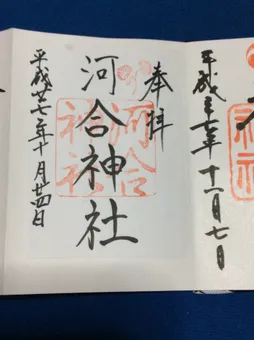 平成二十七年十一月七日
奉拝
河合神社
河合神社
平成廿七年十月廿四日